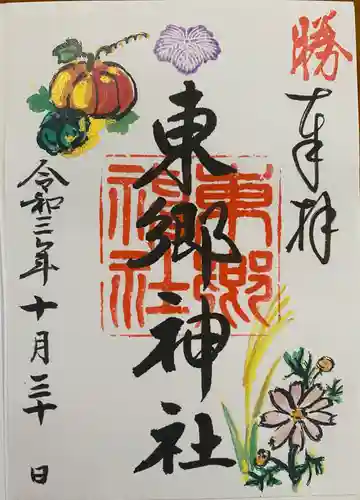 勝
奉拝
東郷神社
東郷神社
令和三年十月三十日